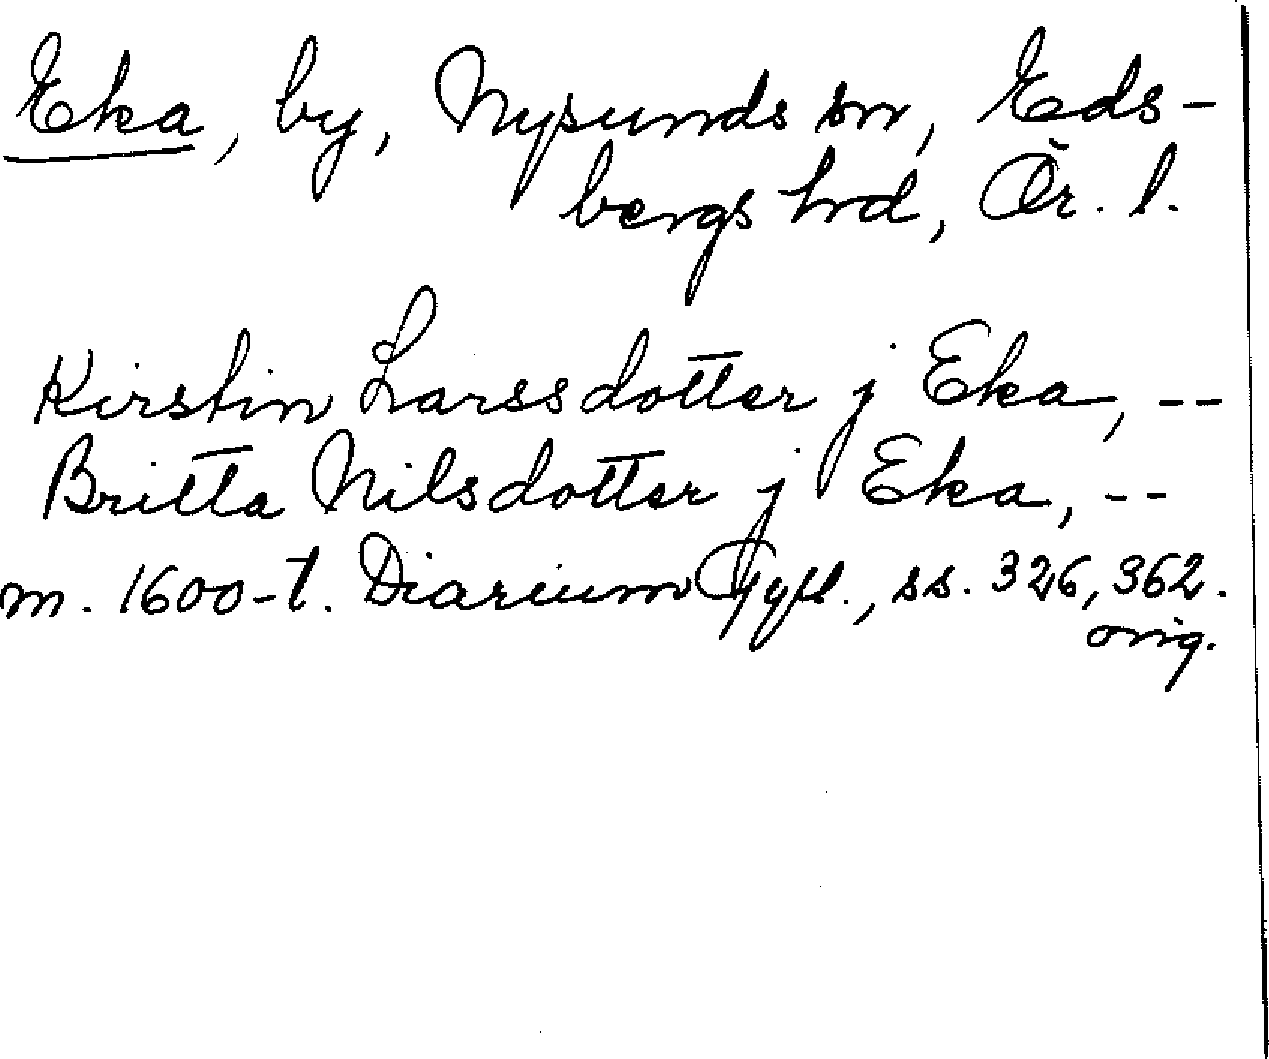 Eka, by, Nysunds sn, Eds-
bergs hrd, Ör. l.
Kirstin Larssdotter j Eka, --
Britta Nilsdotter j Eka, --
m. 1600-t. Diarium Gyll., ss. 326, 362.
orig.